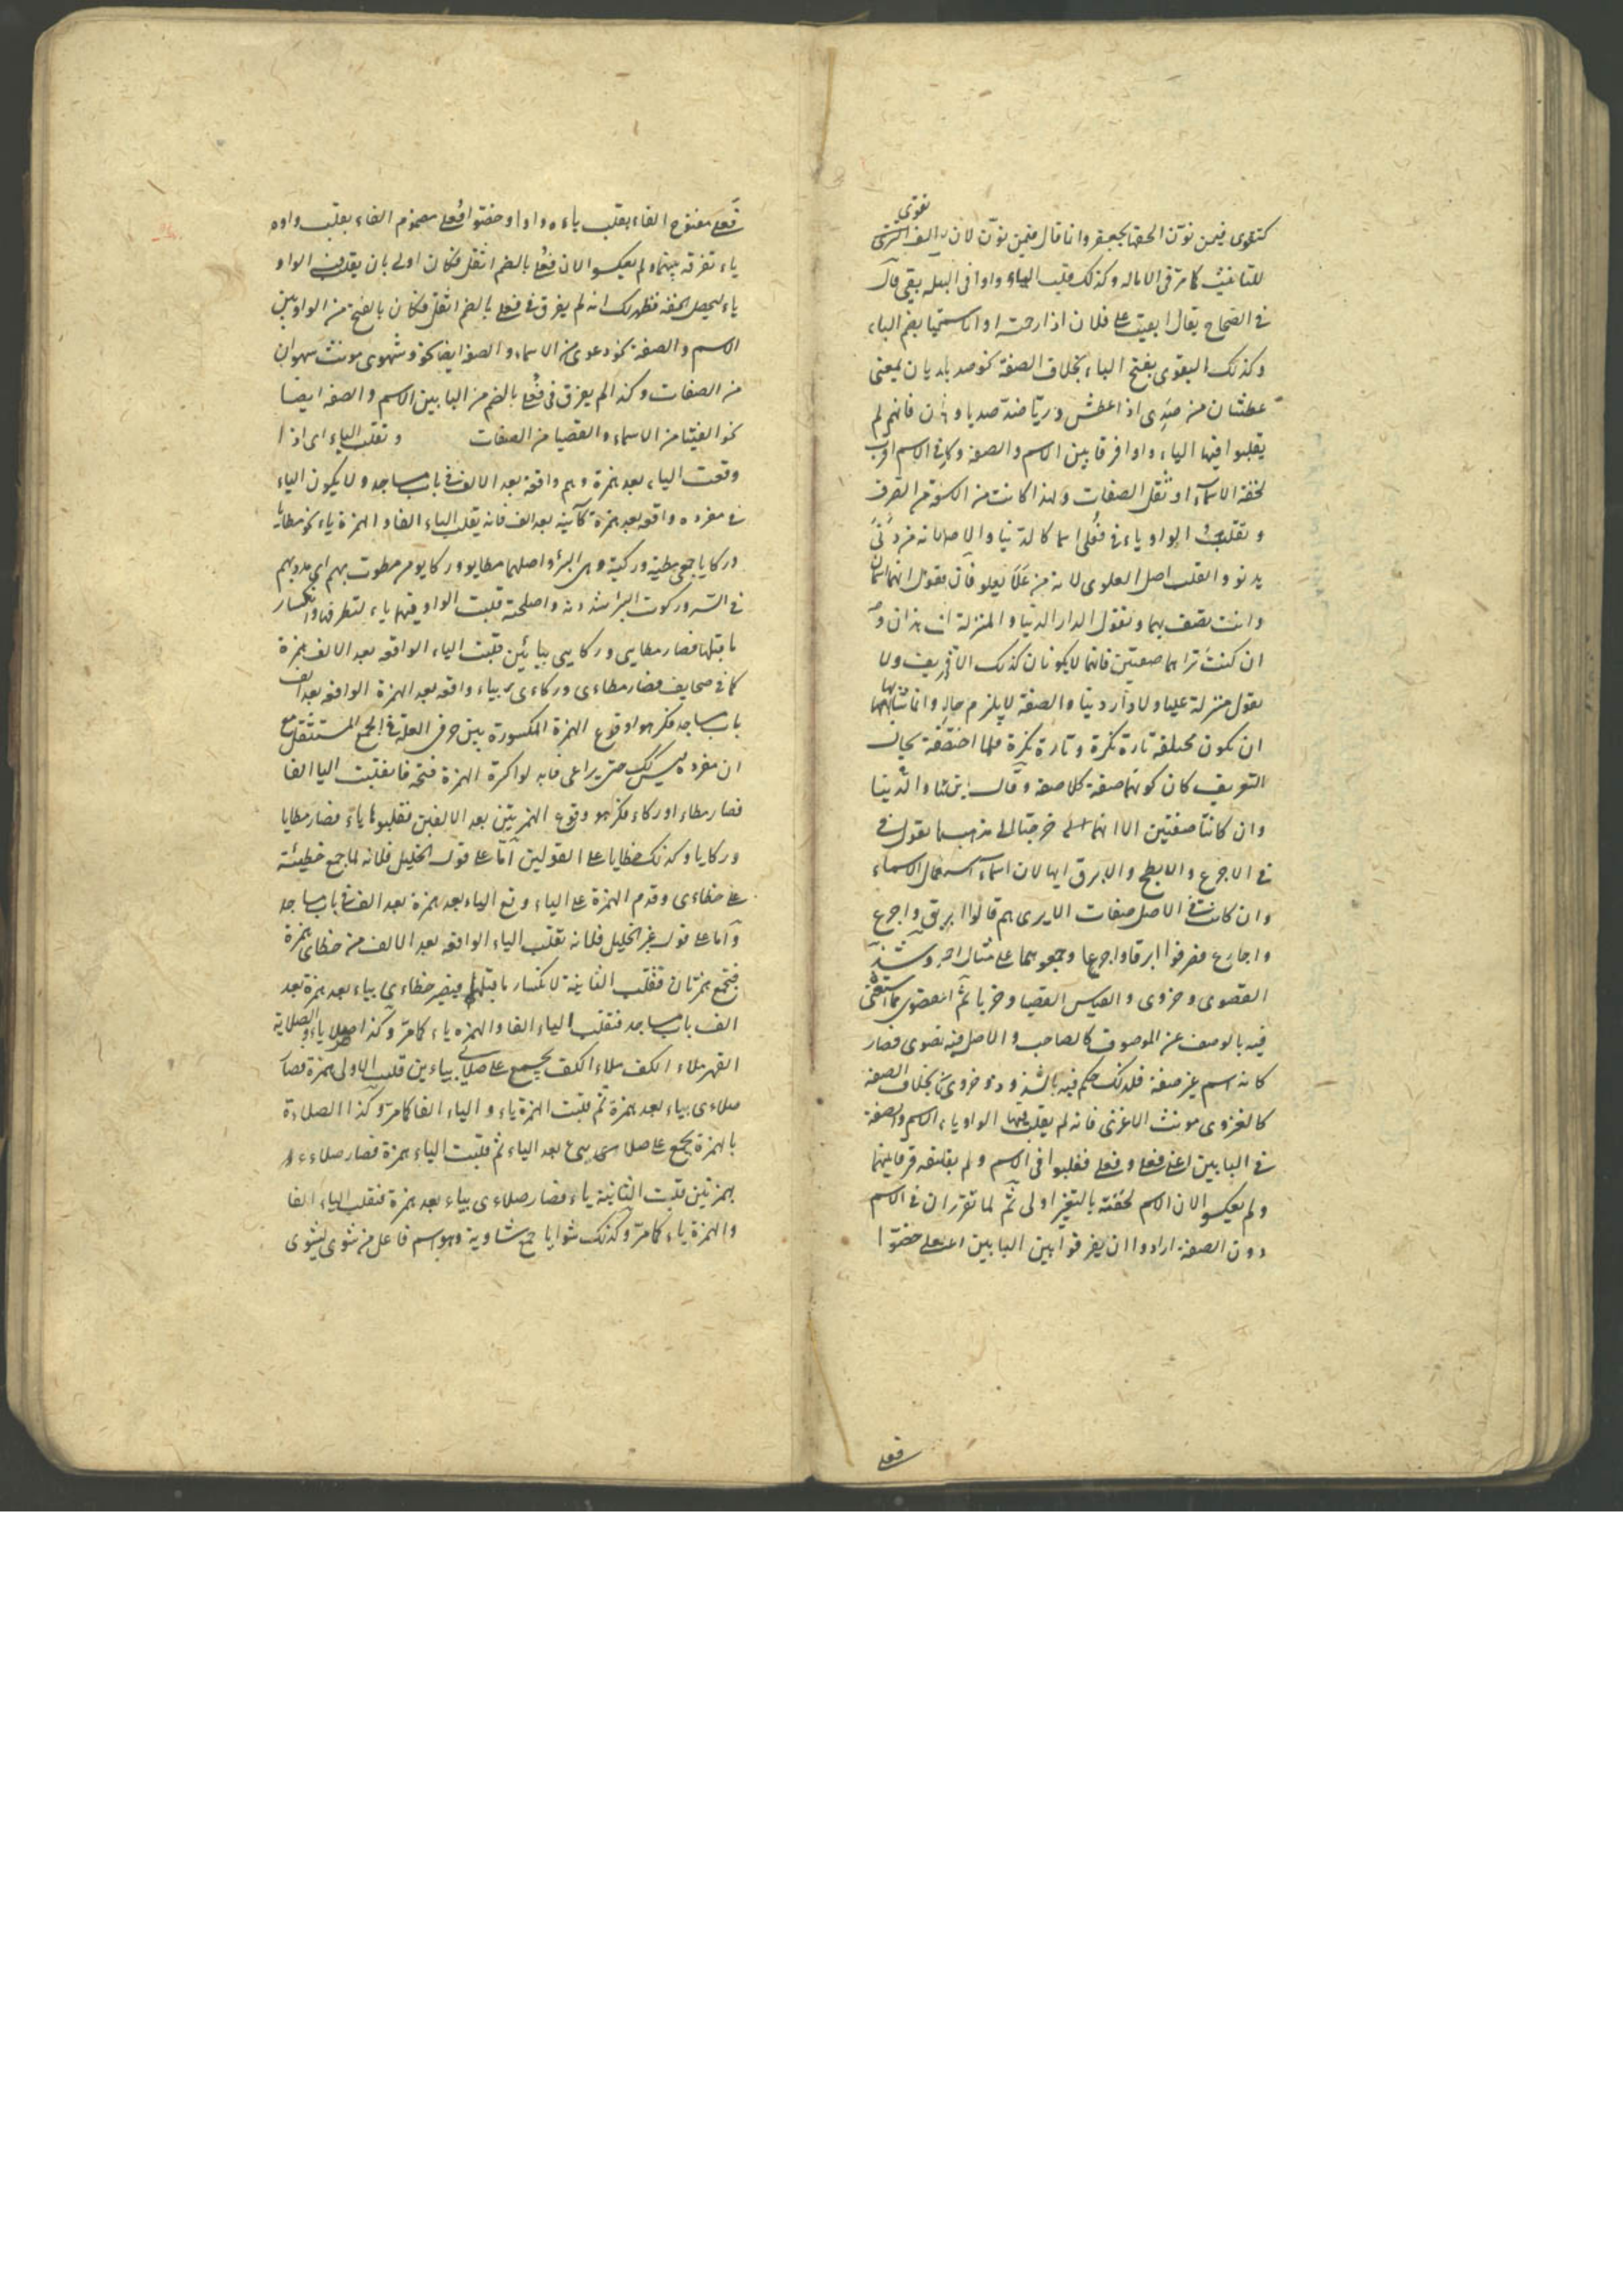 تقوى
كتقوى فيمن نوّن الحقها بجعفر وانما قال فيمن نوّن لان الف
للتانيث كما مرّ فى الاماله وكذلك قلبت الياء واوا فى البقوى قال
فى الصحاح يقال ابقيت على فلان اذا رحمته والاسم البقيا بضم الباء
وكذلك البقوى بفتح الباء بخلاف الصفة نحو صديا وريان بمعنى
عطشان من صدى اذا عطش وريّا ضدّ صديا فانهم لم
يقلبوا فيها الياء واوا فرقا بين الاسم والصفة وكان فى الاسم اقرب
لخفة الاسماء او ثقل الصفات ولهذا كانت من الصرف
وتقلب الواو ياء فى فُعلى اسما كالدنيا والاصل انه من دَنَى
يدنو والقلب اصل العلوى لانه من عَلَا يعلو فان تقول انهما اسمان
وانت تصف بهما وتقول الدار الدنيا والمنزلة
ان كنت تراهما صفتين فانهما لا يكونان كذلك الا فى تعريف ولا
تقول منزلة عليا ولا دار دنيا والصفة لا يلزم حاله وانما شانها
ان تكون مختلفة تارة نكرة وتارة نكرة فلما اختصّت بحال
التعريف كان كونهما صفة كلا صفة وقال والدنيا
وان كانتا صفتين الا انهما خرجتا الى مذهب تقول فى
فى الاجرع والابطح والابرق انها الان اسماء استعمال الاسماء
وان كانت فى الاصل صفات الا يرى انهم قالوا ابرق واجرع
واجارع فصرفوا ابرقا واجرعا وجمعوهما على مثال احمد وشذّ
القصوى وحزوى والقياس القصيا وحزيا ثم القصوى مما استغنى
فيه بالوصف عن الموصوف كالصاحب والاصل فيه قصوى فصار
كانه اسم غير صفة فلذلك حكم فيه بالشذوذ وحزوى بخلاف الصفة
كالغزوى مونث الاغزى فانه لم يقلب فيها الواو ياء الاسم والصفة
فى البابين اعنى فعلى وفعلى فقلبوا فى الاسم ولم يقلبوا فرقا بينهما
ولم يعكسوا لان الاسم لخفته بالتغيير اولى ثم لما تقرر ان فى الاسم
دون الصفة ارادوا ان يفرقوا بين البابين اعنى فعلى خصّوا
فعلى
فَعلى مفتوح الفاء بقلب ياءه واوا وخصّوا فُعلى مضموم الفاء بقلب واوه
ياء تفرقة بينهما ولم يعكسوا لان فُعلى بالضم اثقل فكان اولى بان يقلب فيه الواو
ياء ليحصل الخفة فظهر لك انه لم يفرق فى فعلى بالضم اثقل فكان بالفتح من الواو بين
الاسم والصفة نحو دعوى من الاسماء والصفة ايضا نحو شهوى مونث شهوان
من الصفات وكذا لم يفرق فى فُعلى بالضم من اليا بين الاسم والصفة ايضا
نحو الفتيا من الاسماء والقصيا من الصفات وتقلب الياء اى اذا
وقعت الياء بعد همزة وهى واقعة بعد الالف فى باب مساجد ولا يكون الياء
فى مفرده واقعة بعد همزة كائنة بعد الف فانه يقلب الياء الفا والهمزة ياء نحو مطايا
وركايا جمعى مطية وركية وهى البئر واصلهما مطايو وركايو من مطوت بهم اى مددت بهم
فى السير وركوت البئر شددته واصلحته قلبت الواو فيهما ياء لتطرفها وانكسار
ما قبلها فصار مطايى وركايى بيائين قلبت الياء الواقعة بعد الالف همزة
كما فى صحايف فصار مطاءى وركاءى بياء واقعة بعد الهمزة الواقعة بعد الف
باب مساجد فكرهوا وقوع الهمزة المكسورة بين حرفى العلة فى الجمع المستثقل مع
ان مفرده ليس كذلك حتى يراعى فابدلوا كسرة الهمزة فتحة فانقلبت اليا الفا
فصار مطاءا وركاءا فكرهوا وقوع الهمزتين بعد الالفين فقلبوها ياء فصار مطايا
وركايا وكذلك خطايا على القولين امّا على قول الخليل فلانه لما جمع خطيئة
على خطاءى وقدم الهمزة على الياء وقع الياء بعد همزة بعد الف فى باب مساجد
وامّا على قول غير الخليل فلانه تقلب الياء الواقعة بعد الالف من خطاىء همزة
فتجتمع همزتان فتقلب الثانية لانكسار ما قبلها فيصير خطاءى بياء بعد همزة بعد
الف باب مساجد فتقلب الياء الفا والهمزة ياء كما مرّ وكذا صلايا والصلاية
الفهر ملاء الكف يجمع على صلايى بياءين قلبت الاولى همزة فصار
صلاءى بياء بعد همزة ثم قلبت الهمزة ياء والياء الفا كما مرّ وكذا الصلاءة
بالهمزة يجمع على صلايىء بعد الياء ثم قلبت الياء همزة فصار صلاءء
بهمزتين قلبت الثانية ياء فصار صلاءى بياء بعد همزة فتقلب الياء الفا
والهمزة ياء كما مرّ وكذلك شوايا جمع شاوية وهو اسم فاعل من شوى يشوى